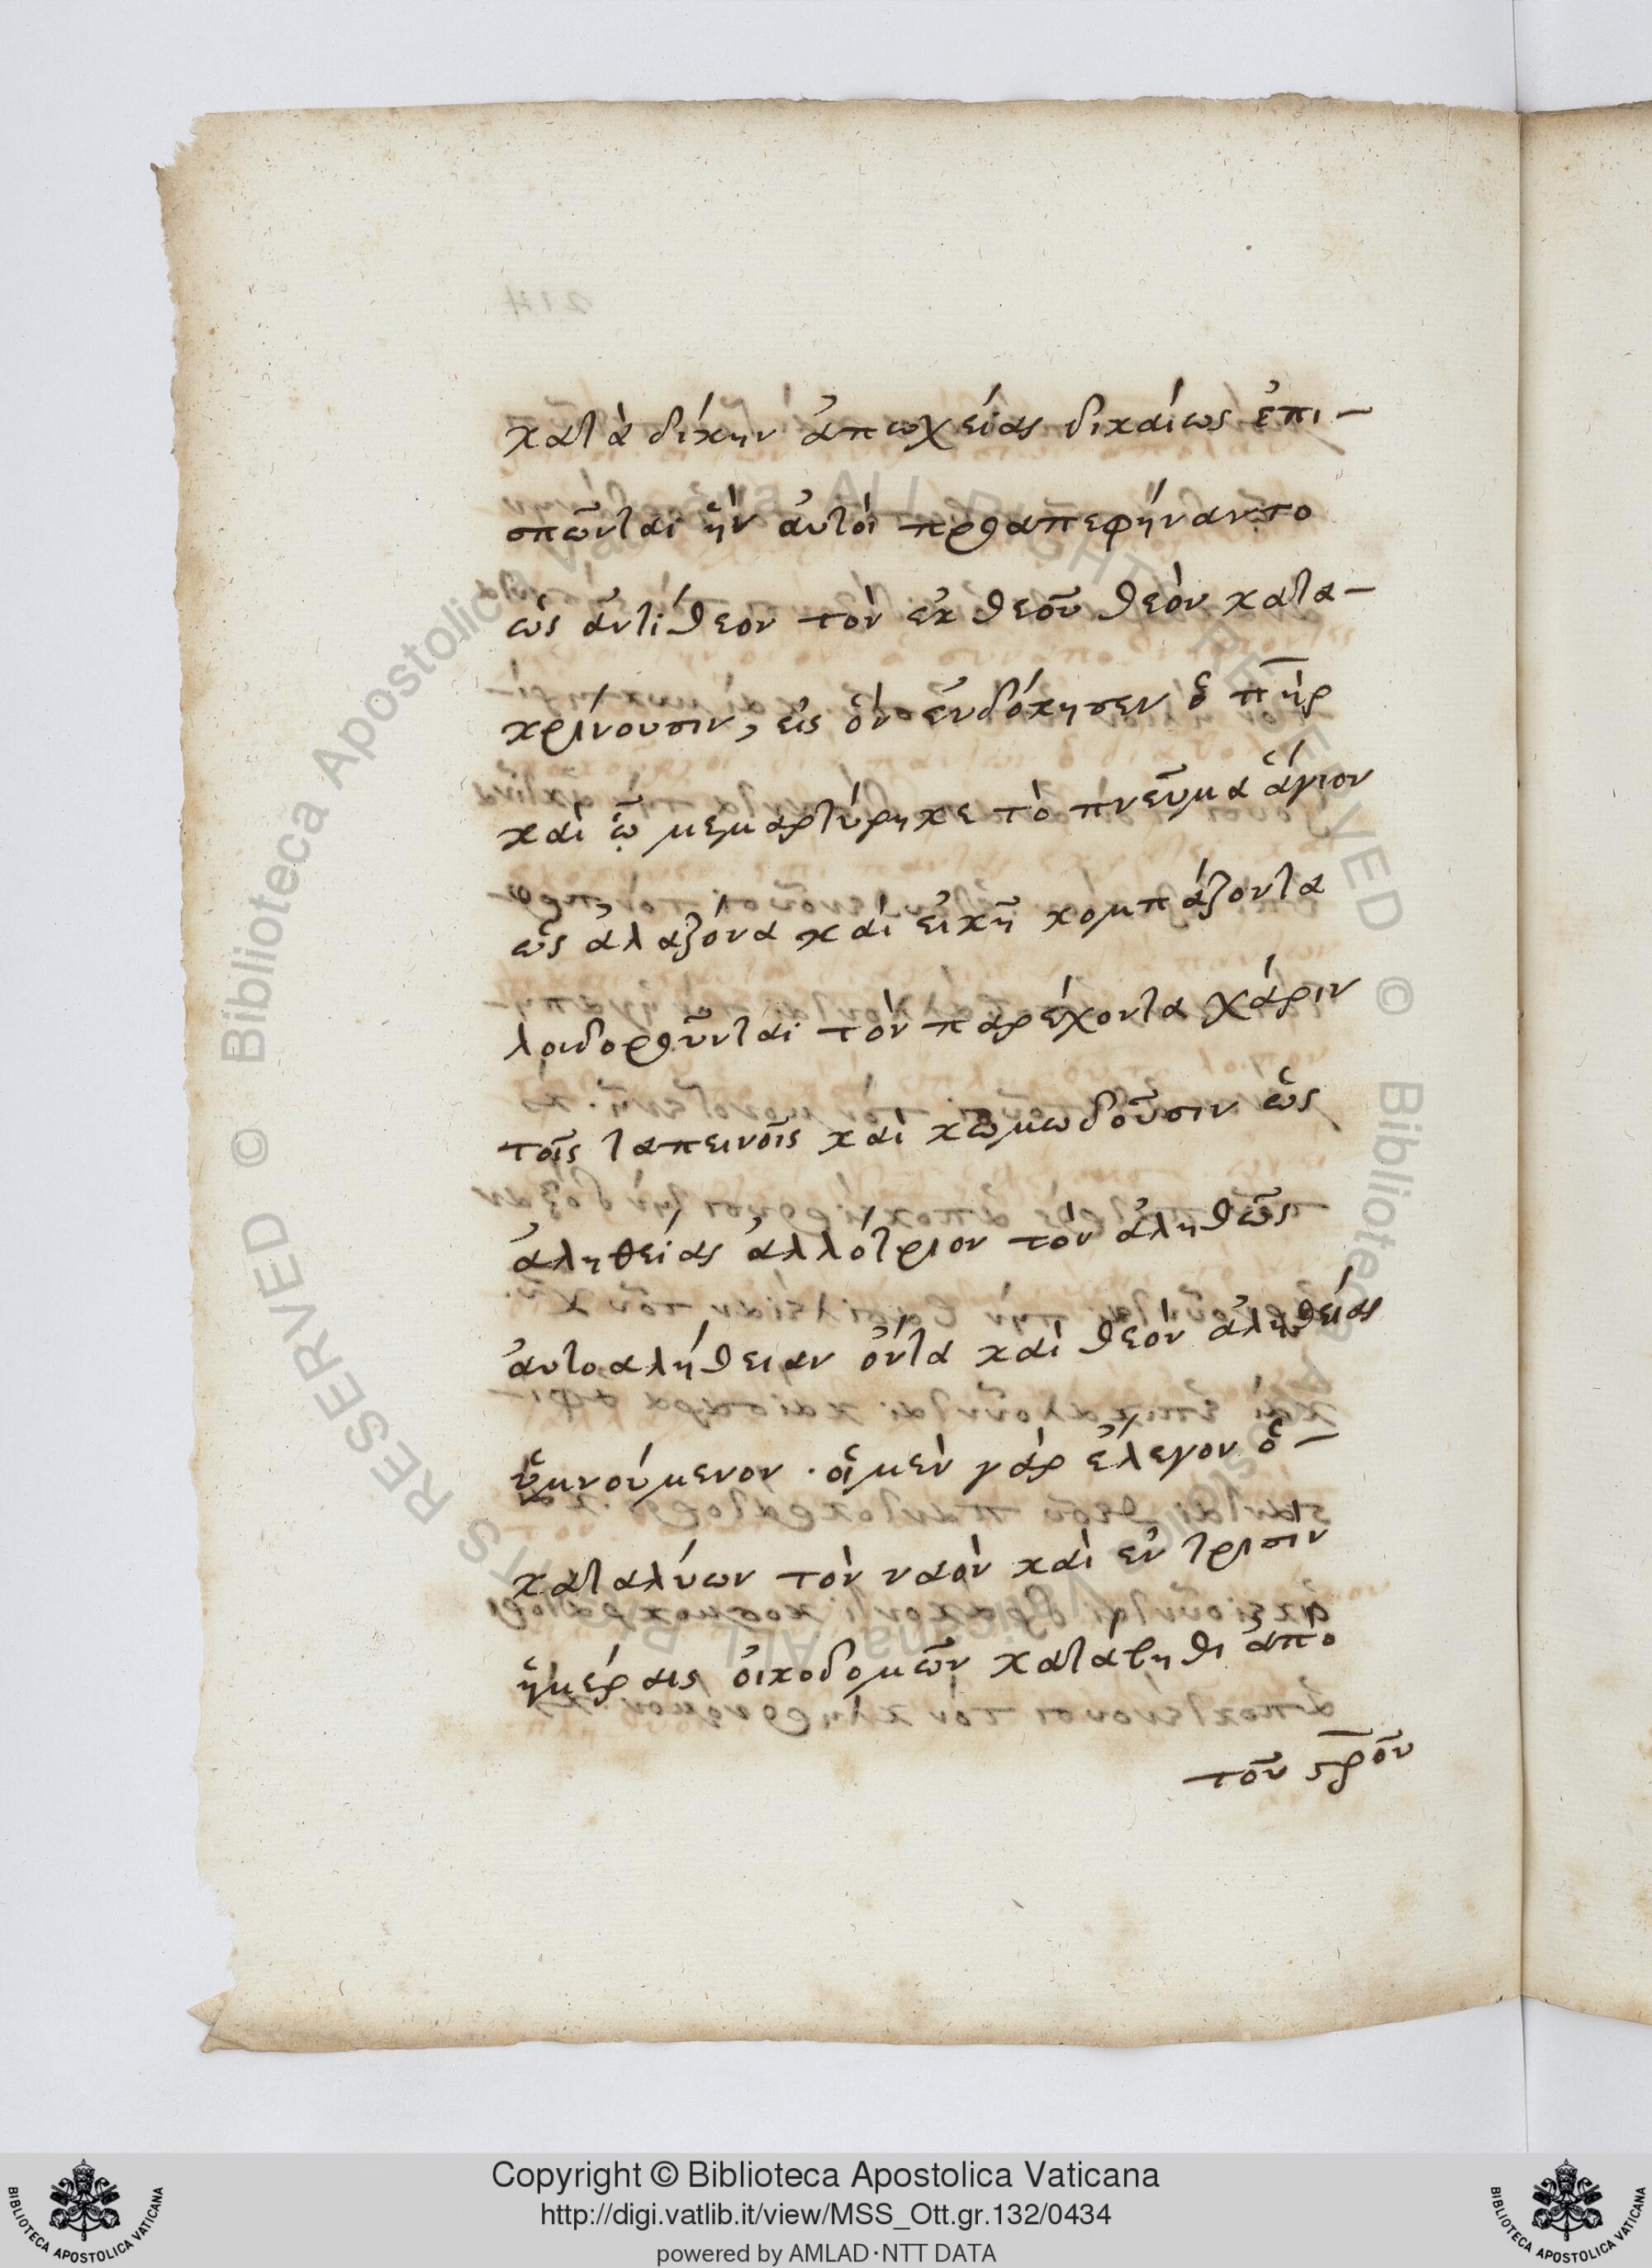 κατὰ δίκην ἀπωχείας δικαίως ἐπι-
σπῶνται ἣν αὐτοὶ προαπεφήναντο
ὡς ἀντίθεον τὸν ἐκ θεοῦ θεὸν κατα-
κρίνουσιν, εἰς ὃν ἐυδόκησεν ὁ πηρ
καὶ ᾧ μεμαρτύρηκε τὸ πνεῦμα ἅγιον
ὡς ἀλαζόνα καὶ εἰκῆ κομπάζοντα
λοιδοροῦνται τὸν παρέχοντα χάριν
τοῖς ταπεινοῖς καὶ κωμωδοῦσιν ὡς
ἀληθείας ἀλλότριον τὸν ἀληθῶς
ἀυτοαλήθειαν ὄντα καὶ θεὸν ἀληθείας
ὑμνούμενον · οἱ μὲν γὰρ ἔλεγον ὁ-
καταλύων τὸν ναὸν καὶ ἐν τρισὶν
ἡμέραις οἰκοδομῶν κατάβηθι ἀπὸ
τοῦ σροῦ
Copyright © Biblioteca Apostolica Vaticana
http://digi.vatlib.it/view/MSS_Ott.gr.132/0434
powered by AMLAD·NTT DATA
BIBLIOTECA APOSTOLICA VATICANA
BIBLIOTECA APOSTOLICA VATICANA